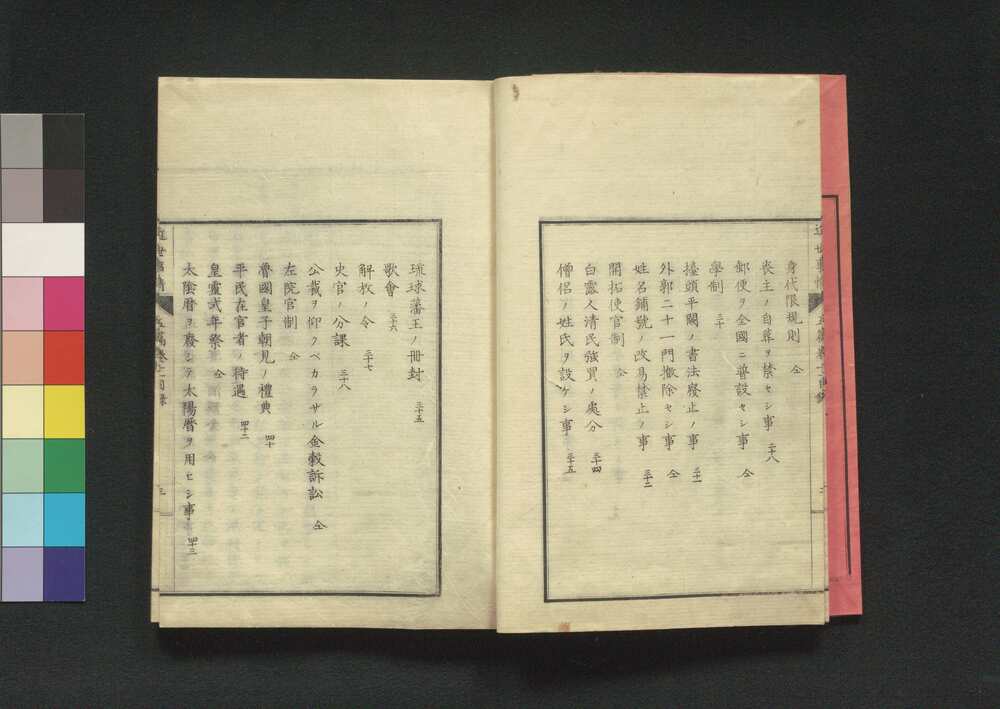 身代限規則 仝
喪主ノ自葬ヲ禁セシ事 三十八
郵便ヲ全國ニ普設セシ事 仝
學制 三十
擡頭平闕ノ書法廢止ノ事 三十一
外郭二十一門撤除セシ事 仝
姓名鋪號ノ改易禁止ノ事 三十三
開拓使官制 仝
白露人清民強買ノ処分 三十四
僧侶ノ姓氏ヲ設ケシ事 三十五
琉球藩王ノ冊封 三十五
歌會 三十六
解放ノ令 三十七
史官ノ分課 三十八
公裁ヲ仰クベカラサル金穀訴訟 仝
左院官制 仝
魯國皇子朝見ノ禮典 四十
平民在官者ノ待遇 四十二
皇靈式年祭 仝
太陰暦ヲ廢シテ太陽暦ヲ用ヒシ事 四十三